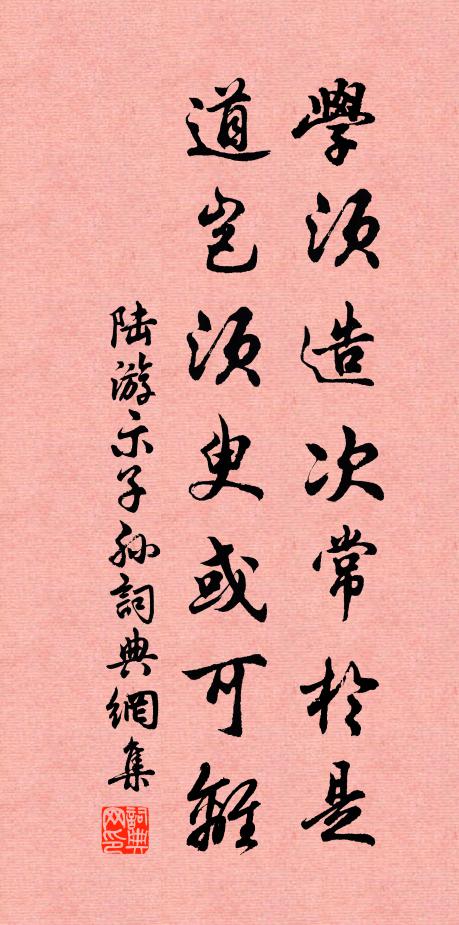 學須造次常於是
道豈須臾或可離
陆游示子孙詞典網集
詞典网印